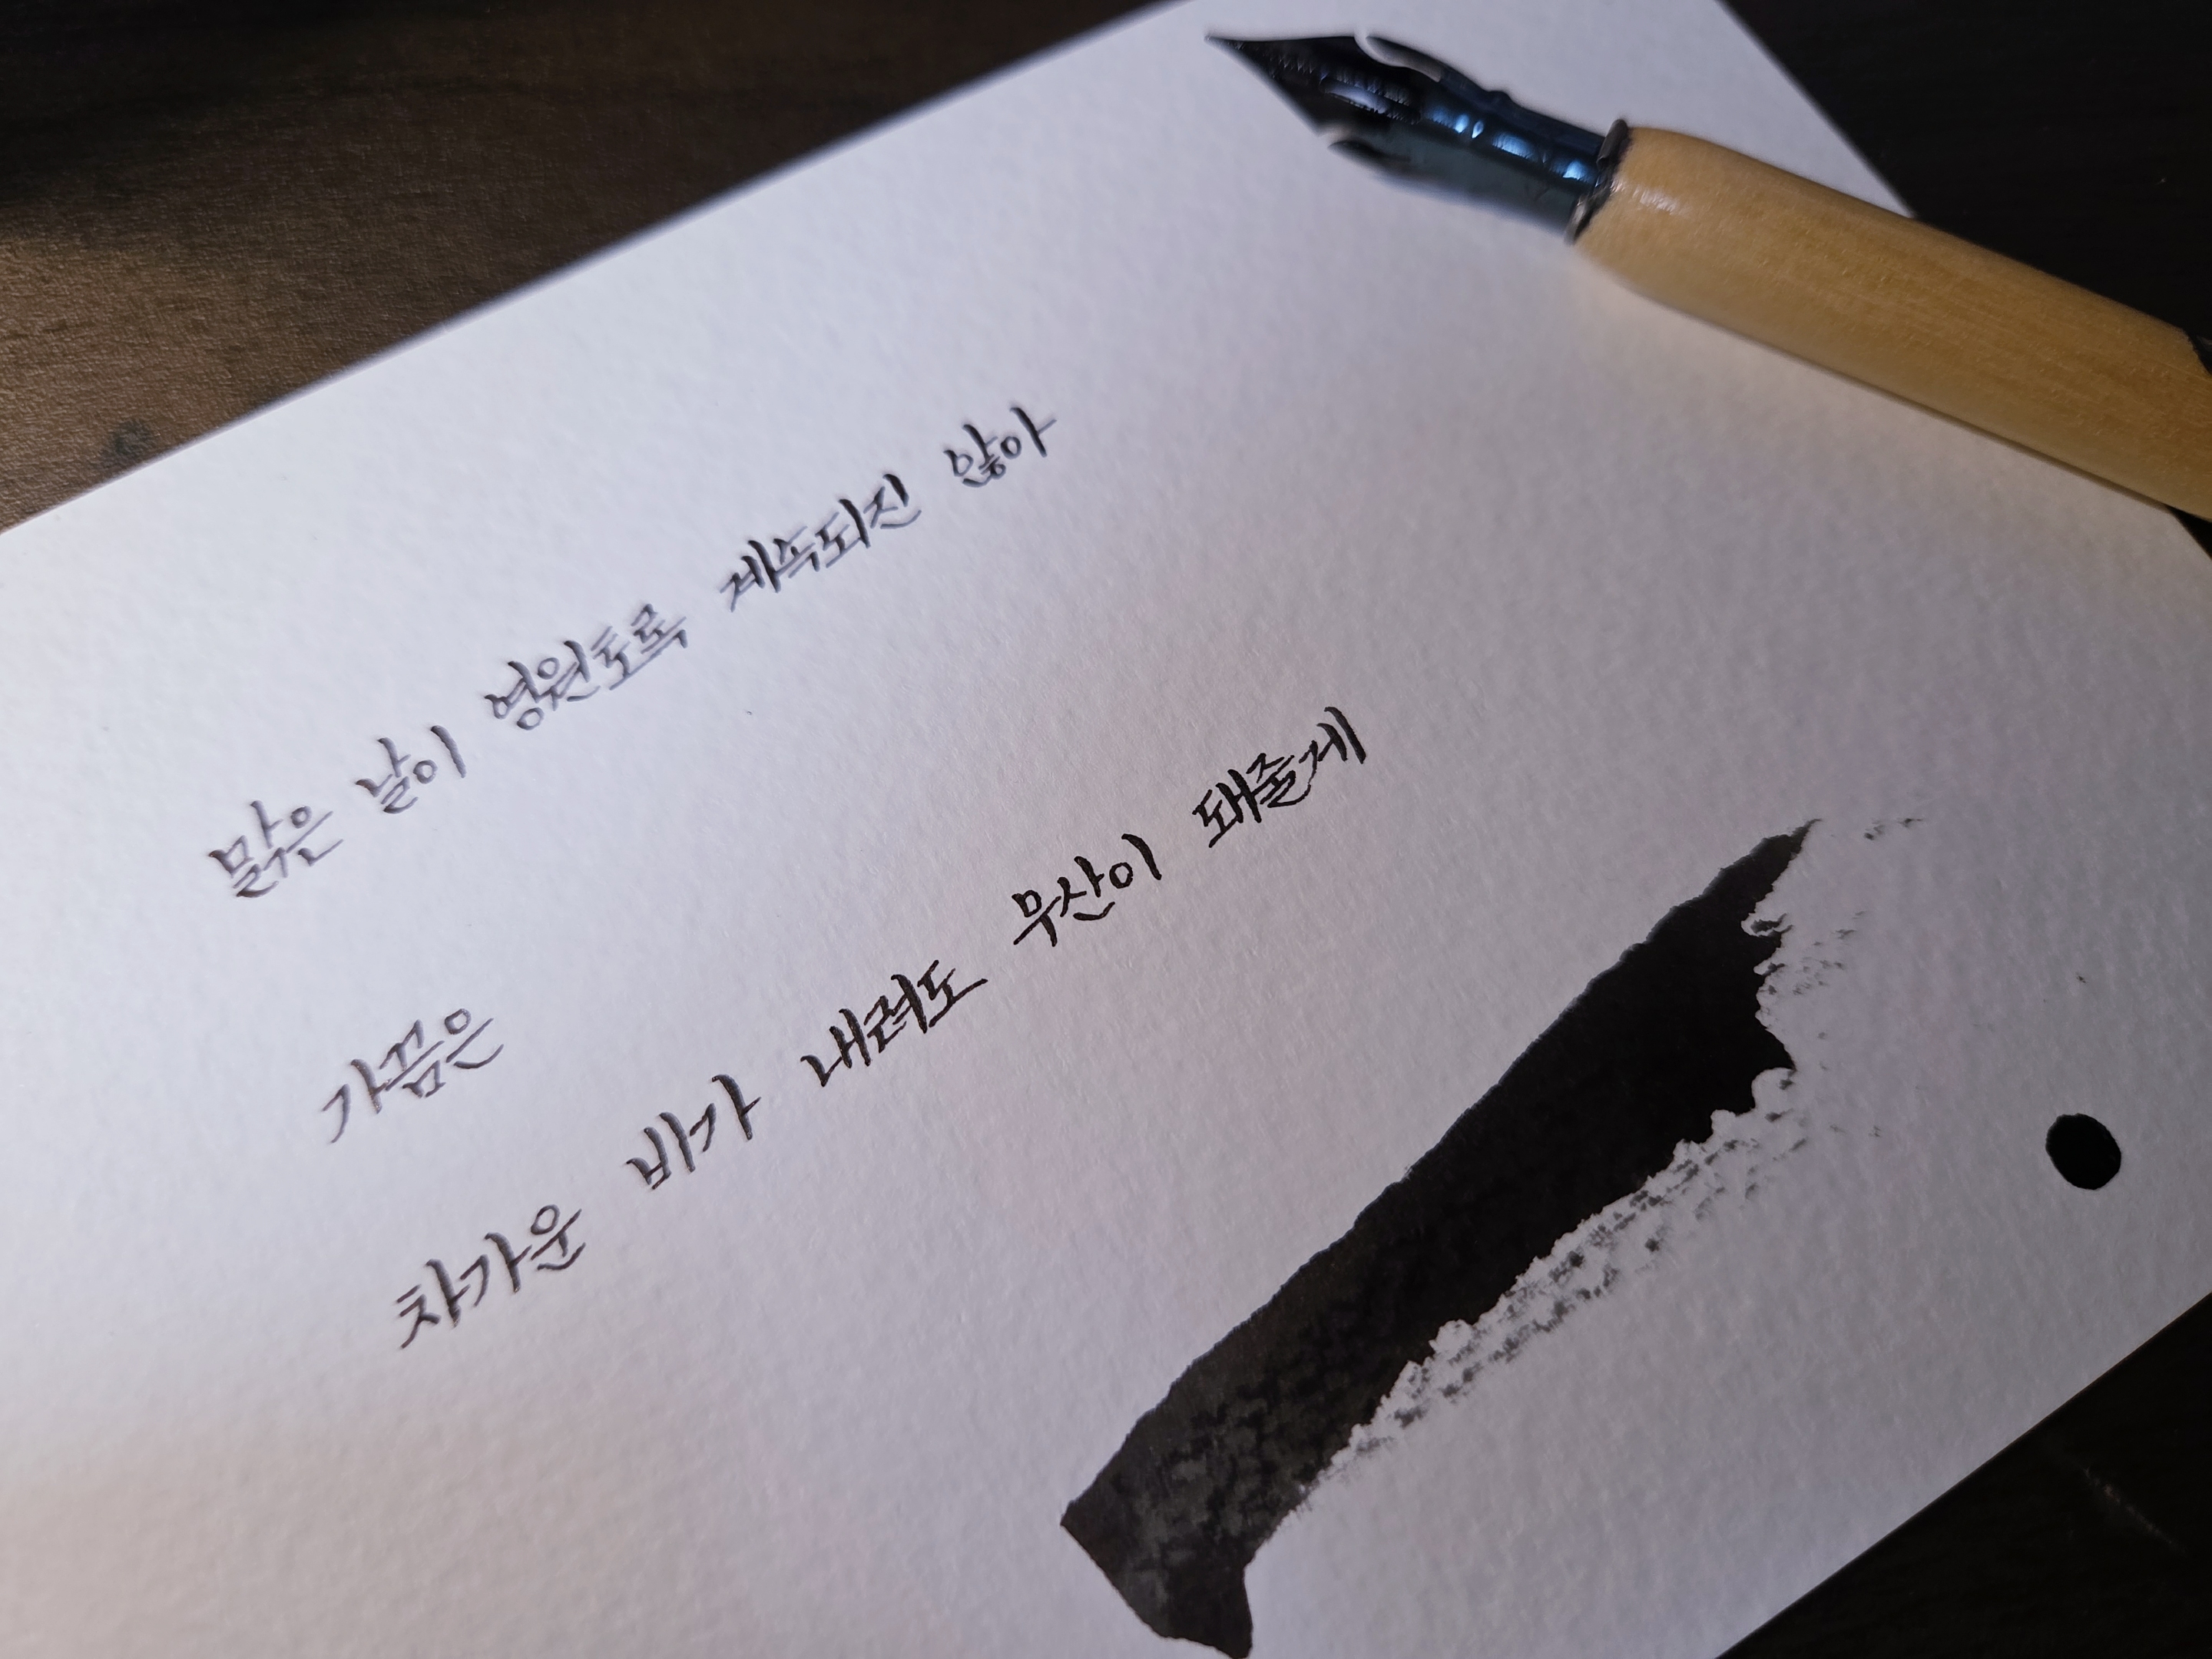 맑은 날이 영원토록 계속되진 않아
가끔은
차가운 비가 내려도 우산이 돼줄게